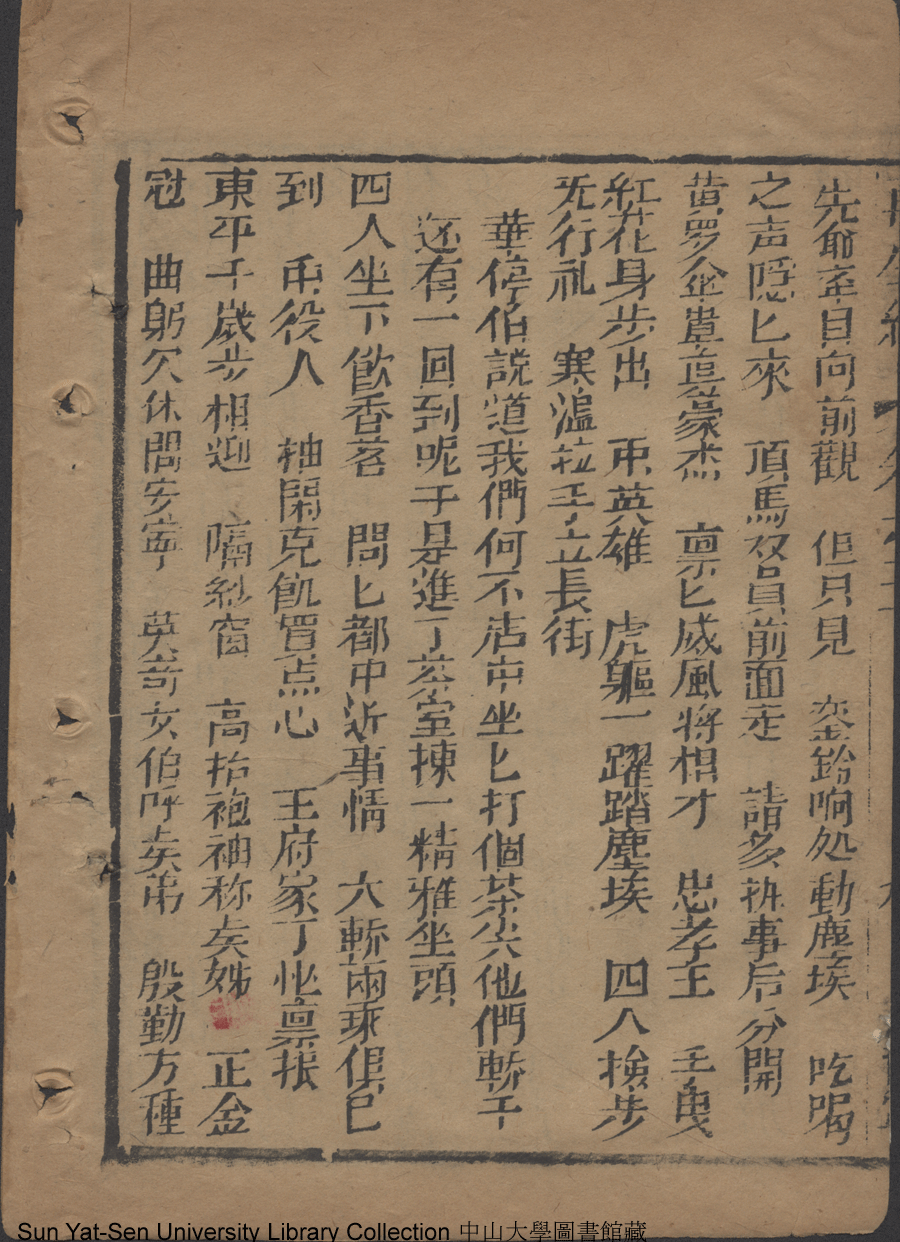 先爺牽目向前觀　但只見　鑾鈴响処動塵埃　吃喝
之声隱匕來　頂馬双員前面走　諸多执事后分開
黄罗伞盖真豪杰　禀匕威風將相才　忠孝王　王曳
紅花身步出　雨英雄　虎軀一躍踏塵埃　四人挨步
先行礼　寒温拉手立長街
華停伯説道我們何不店中坐匕打個茶尖他們轎子
还有一回到呢于是進了茶室揀一精雅坐頭
四人坐下飲香茗　問匕都中近事情　大轎兩乘俱已
到　雨役人　抽閑克飢買点心　王府家丁忙禀报
東平千歲步相迎　隔紗窗　高抬袍袖称矣姊　正金
冠　曲躬欠休問安寧　英奇女伯呼矣弟　殷勤方種
Sun Yat-Sen University Library Collection 中山大學圖書館藏